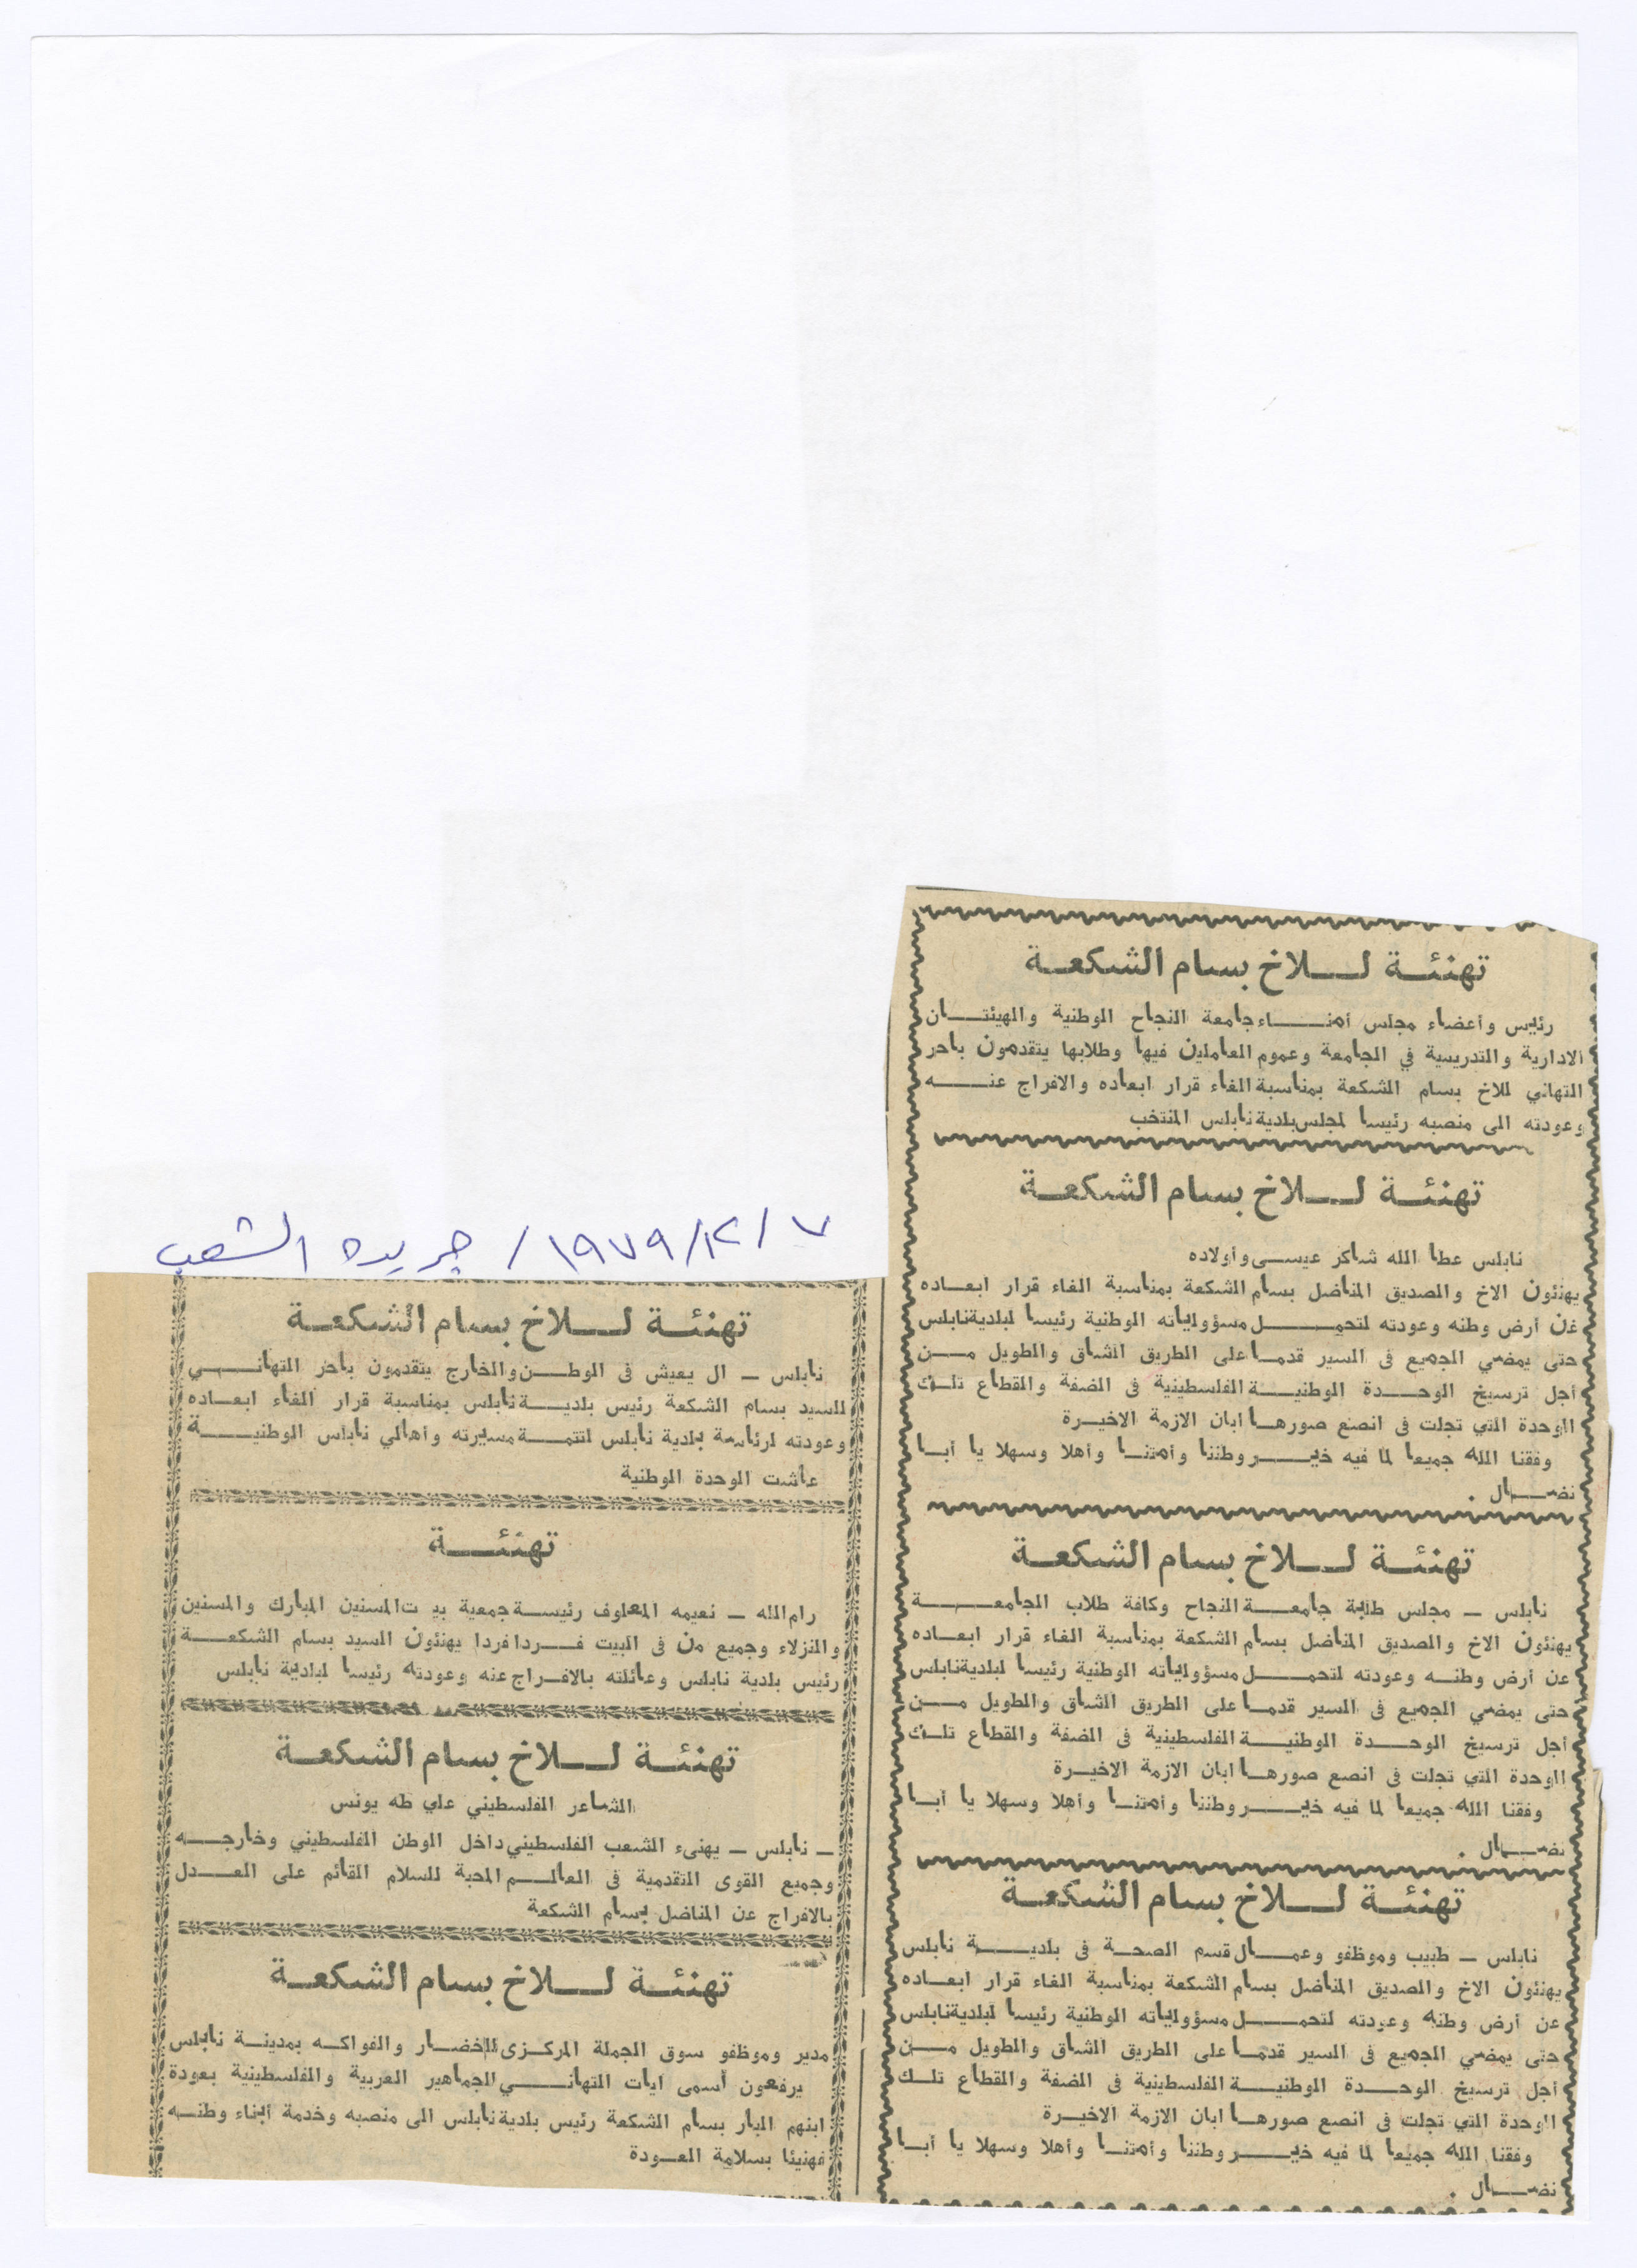 تهنئة للاخ بسام الشكعة
رئيس وأعضاء مجلس أمناء جامعة النجاح الوطنية والهيئتان
الادارية والتدريسية في الجامعة وعموم العاملين فيها وطلابها يتقدمون باحر
التهاني للاخ بسام الشكعة بمناسبة الغاء قرار ابعاده والافراج عنه
وعودته الى منصبه رئيسا لمجلس بلدية نابلس المنتخب
تهنئة للاخ بسام الشكعة
نابلس عطا الله شاكر عيسى وأولاده
يهنئون الاخ والصديق المناضل بسام الشكعة بمناسبة الغاء قرار ابعاده
عن أرض وطنه وعودته لتحمل مسؤولياته الوطنية رئيسا لبلدية نابلس
حتى يمضي الجميع فى السير قدما على الطريق الشاق والطويل من
أجل ترسيخ الوحدة الوطنية الفلسطينية فى الضفة والقطاع تلك
الوحدة التي تجلت فى انصع صورها ابان الازمة الاخيرة
وفقنا الله جميعا لما فيه خير وطننا وأمتنا وأهلا وسهلا يا أبا
نضال .
تهنئة للاخ بسام الشكعة
نابلس ــ مجلس طلبة جامعة النجاح وكافة طلاب الجامعة
يهنئون الاخ والصديق المناضل بسام الشكعة بمناسبة الغاء قرار ابعاده
عن أرض وطنه وعودته لتحمل مسؤولياته الوطنية رئيسا لبلدية نابلس
حتى يمضي الجميع فى السير قدما على الطريق الشاق والطويل من
أجل ترسيخ الوحدة الوطنية الفلسطينية فى الضفة والقطاع تلك
الوحدة التي تجلت فى انصع صورها ابان الازمة الاخيرة
وفقنا الله جميعا لما فيه خير وطننا وأمتنا وأهلا وسهلا يا أبا
نضال .
تهنئة للاخ بسام الشكعة
نابلس ــ طبيب وموظفو وعمال قسم الصحة فى بلدية نابلس
يهنئون الاخ والصديق المناضل بسام الشكعة بمناسبة الغاء قرار ابعاده
عن أرض وطنه وعودته لتحمل مسؤولياته الوطنية رئيسا لبلدية نابلس
حتى يمضي الجميع فى السير قدما على الطريق الشاق والطويل من
أجل ترسيخ الوحدة الوطنية الفلسطينية فى الضفة والقطاع تلك
الوحدة التي تجلت فى انصع صورها ابان الازمة الاخيرة
وفقنا الله جميعا لما فيه خير وطننا وأمتنا وأهلا وسهلا يا أبا
نضال .
٧ / ١٢ / ١٩٧٩ / جريده الشعب
تهنئة للاخ بسام الشكعة
نابلس ــ ال يعيش فى الوطن والخارج يتقدمون باحر التهاني
للسيد بسام الشكعة رئيس بلدية نابلس بمناسبة قرار الغاء ابعاده
وعودته لرئاسة بلدية نابلس لتتمة مسيرته وأهالي نابلس الوطنية
عاشت الوحدة الوطنية
تهنئة
رام الله ــ نعيمه المعلوف رئيسة جمعية بيت المسنين المبارك والمسنين
والنزلاء وجميع من فى البيت فردا فردا يهنئون السيد بسام الشكعة
رئيس بلدية نابلس وعائلته بالافراج عنه وعودته رئيسا لبلدية نابلس
تهنئة للاخ بسام الشكعة
الشاعر الفلسطيني علي طه يونس
ــ نابلس ــ يهنىء الشعب الفلسطيني داخل الوطن الفلسطيني وخارجه
وجميع القوى التقدمية فى العالم المحبة للسلام القائم على العدل
بالافراج عن المناضل بسام الشكعة
تهنئة للاخ بسام الشكعة
مدير وموظفو سوق الجملة المركزى للخضار والفواكه بمدينة نابلس
يرفعون أسمى ايات التهاني للجماهير العربية والفلسطينية بعودة
ابنهم البار بسام الشكعة رئيس بلدية نابلس الى منصبه وخدمة أبناء وطنه
فهنيئا بسلامة العودة